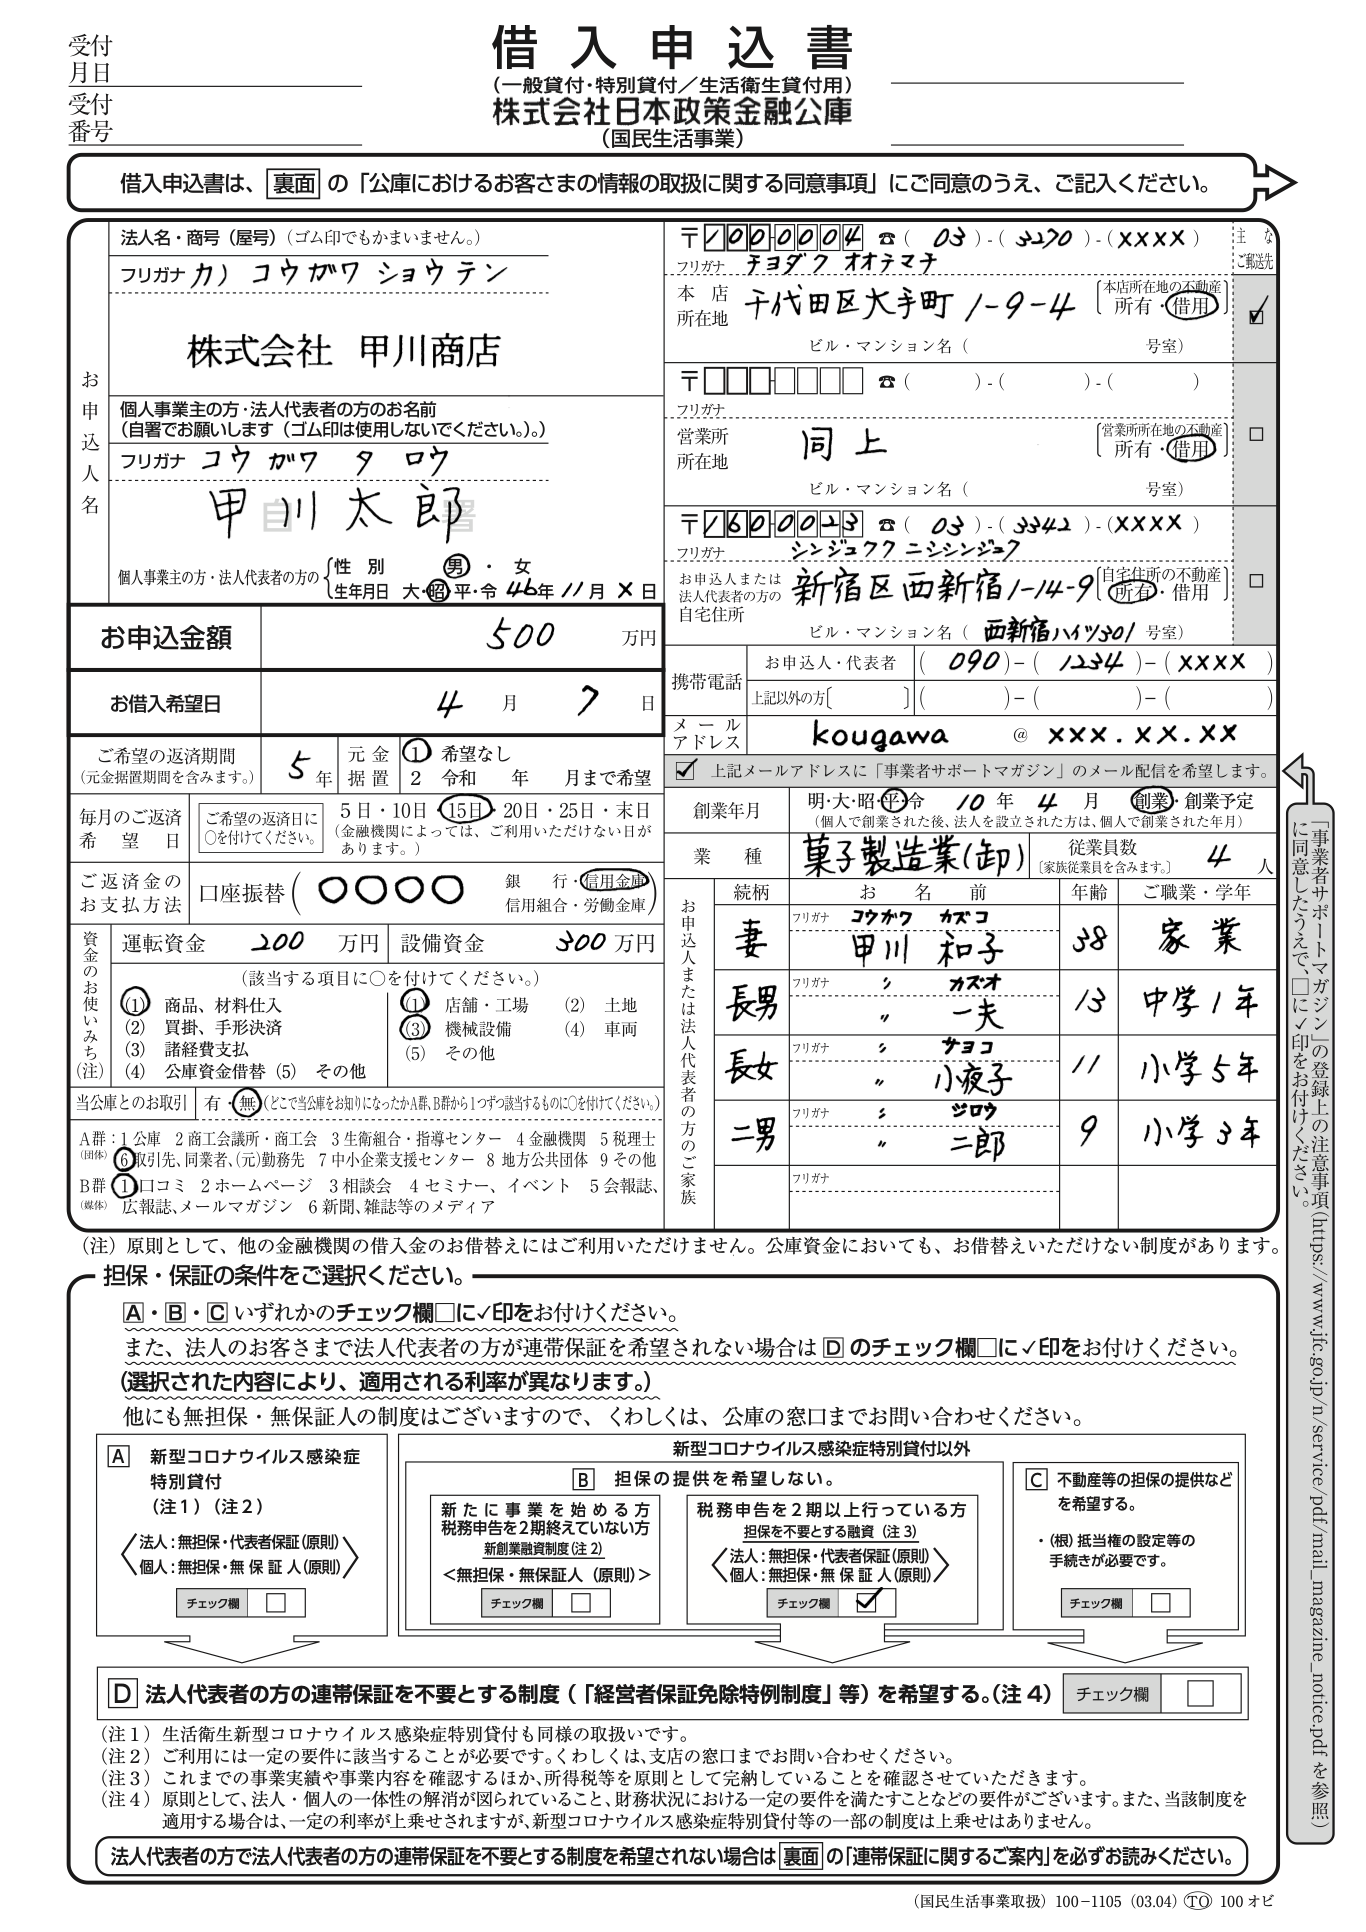 受付
月日
受付
番号
借入申込書
(一般貸付･特別貸付／生活衛生貸付用)
株式会社日本政策金融公庫
(国民生活事業)
借入申込書は、裏面の「公庫におけるお客さまの情報の取扱に関する同意事項」にご同意のうえ、ご記入ください。
お申込人名
法人名・商号（屋号）（ゴム印でもかまいません。）
フリガナ カ）コウガワ ショウテン
株式会社 甲川商店
個人事業主の方･法人代表者の方のお名前
（自署でお願いします（ゴム印は使用しないでください。）。）
フリガナ コウ ガワ タ ロウ
自署
甲川太郎
個人事業主の方・法人代表者の方の
性別 男・女
生年月日 大・昭・平・令 46年 11月 X日
お申込金額 500 万円
お借入希望日 4月 7日
ご希望の返済期間
（元金据置期間を含みます。） 5年
元金据置
1 希望なし
2 令和 年 月まで希望
毎月のご返済希望日
ご希望の返済日に
○を付けてください。
5日・10日・15日・20日・25日・末日
（金融機関によっては、ご利用いただけない日が
あります。）
ご返済金の
お支払方法
口座振替（〇〇〇〇 銀行・信用金庫
信用組合・労働金庫）
資金のお使いみち（注）
運転資金 200 万円 設備資金 300 万円
（該当する項目に○を付けてください。）
(1) 商品、材料仕入
(2) 買掛、手形決済
(3) 諸経費支払
(4) 公庫資金借替 (5) その他
(1) 店舗・工場 (2) 土地
(3) 機械設備 (4) 車両
(5) その他
当公庫とのお取引 有・無（どこで当公庫をお知りになったかA群、B群から1つずつ該当するものに○を付けてください。）
A群：1 公庫 2 商工会議所・商工会 3 生衛組合・指導センター 4 金融機関 5 税理士
（団体） 6 取引先、同業者、(元)勤務先 7 中小企業支援センター 8 地方公共団体 9 その他
B群 1 口コミ 2 ホームページ 3 相談会 4 セミナー、イベント 5 会報誌、
（媒体） 広報誌、メールマガジン 6 新聞、雑誌等のメディア
〒100-0004 ☎（03）-（3270）-（XXXX）
主な
ご郵送先
フリガナ チヨダク オオテマチ
本店
所在地 千代田区大手町1-9-4
本店所在地の不動産
所有・借用
ビル・マンション名（ 号室）
〒 ☎（ ）-（ ）-（ ）
フリガナ
営業所
所在地 同上
営業所所在地の不動産
所有・借用
ビル・マンション名（ 号室）
〒160-0023 ☎（03）-（3342）-（XXXX）
フリガナ シンジュクク ニシシンジュク
お申込人または
法人代表者の方の
自宅住所
新宿区西新宿1-14-9
自宅住所の不動産
所有・借用
ビル・マンション名（西新宿ハイツ301 号室）
携帯電話
お申込人・代表者 （090）-（1234）-（XXXX）
上記以外の方〔 〕（ ）-（ ）-（ ）
メール
アドレス kougawa @ xxx.xx.xx
上記メールアドレスに「事業者サポートマガジン」のメール配信を希望します。
創業年月 明・大・昭・平・令 10年 4月 創業・創業予定
（個人で創業された後、法人を設立された方は、個人で創業された年月）
業種 菓子製造業(卸)
従業員数
〔家族従業員を含みます。〕 4人
お申込人または法人代表者の方のご家族
続柄 お名前 年齢 ご職業・学年
フリガナ コウガワ カズコ
妻 甲川 和子 38 家業
フリガナ 〃 カズオ
長男 〃 一夫 13 中学1年
フリガナ 〃 サヨコ
長女 〃 小夜子 11 小学5年
フリガナ 〃 ジロウ
二男 〃 二郎 9 小学3年
フリガナ
「事業者サポートマガジン」の登録上の注意事項(https://www.jfc.go.jp/n/service/pdf/mail_magazine_notice.pdf を参照)
に同意したうえで、□に✓印をお付けください。
（注）原則として、他の金融機関の借入金のお借替えにはご利用いただけません。公庫資金においても、お借替えいただけない制度があります。
担保・保証の条件をご選択ください。
A・B・Cいずれかのチェック欄□に✓印をお付けください。
また、法人のお客さまで法人代表者の方が連帯保証を希望されない場合はDのチェック欄□に✓印をお付けください。
（選択された内容により、適用される利率が異なります。）
他にも無担保・無保証人の制度はございますので、くわしくは、公庫の窓口までお問い合わせください。
A 新型コロナウイルス感染症
特別貸付
（注1）（注2）
法人：無担保・代表者保証（原則）
個人：無担保・無保証人（原則）
チェック欄
新型コロナウイルス感染症特別貸付以外
B 担保の提供を希望しない。
新たに事業を始める方
税務申告を2期終えていない方
新創業融資制度（注2）
＜無担保・無保証人（原則）＞
チェック欄
税務申告を2期以上行っている方
担保を不要とする融資（注3）
法人：無担保・代表者保証（原則）
個人：無担保・無保証人（原則）
チェック欄 ✓
C 不動産等の担保の提供など
を希望する。
・（根）抵当権の設定等の
手続きが必要です。
チェック欄
D 法人代表者の方の連帯保証を不要とする制度（「経営者保証免除特例制度」等）を希望する。（注4） チェック欄
（注1）生活衛生新型コロナウイルス感染症特別貸付も同様の取扱いです。
（注2）ご利用には一定の要件に該当することが必要です。くわしくは、支店の窓口までお問い合わせください。
（注3）これまでの事業実績や事業内容を確認するほか、所得税等を原則として完納していることを確認させていただきます。
（注4）原則として、法人・個人の一体性の解消が図られていること、財務状況における一定の要件を満たすことなどの要件がございます。また、当該制度を
適用する場合は、一定の利率が上乗せされますが、新型コロナウイルス感染症特別貸付等の一部の制度は上乗せはありません。
法人代表者の方で法人代表者の方の連帯保証を不要とする制度を希望されない場合は裏面の「連帯保証に関するご案内」を必ずお読みください。
（国民生活事業取扱）100-1105（03.04）TO 100オビ